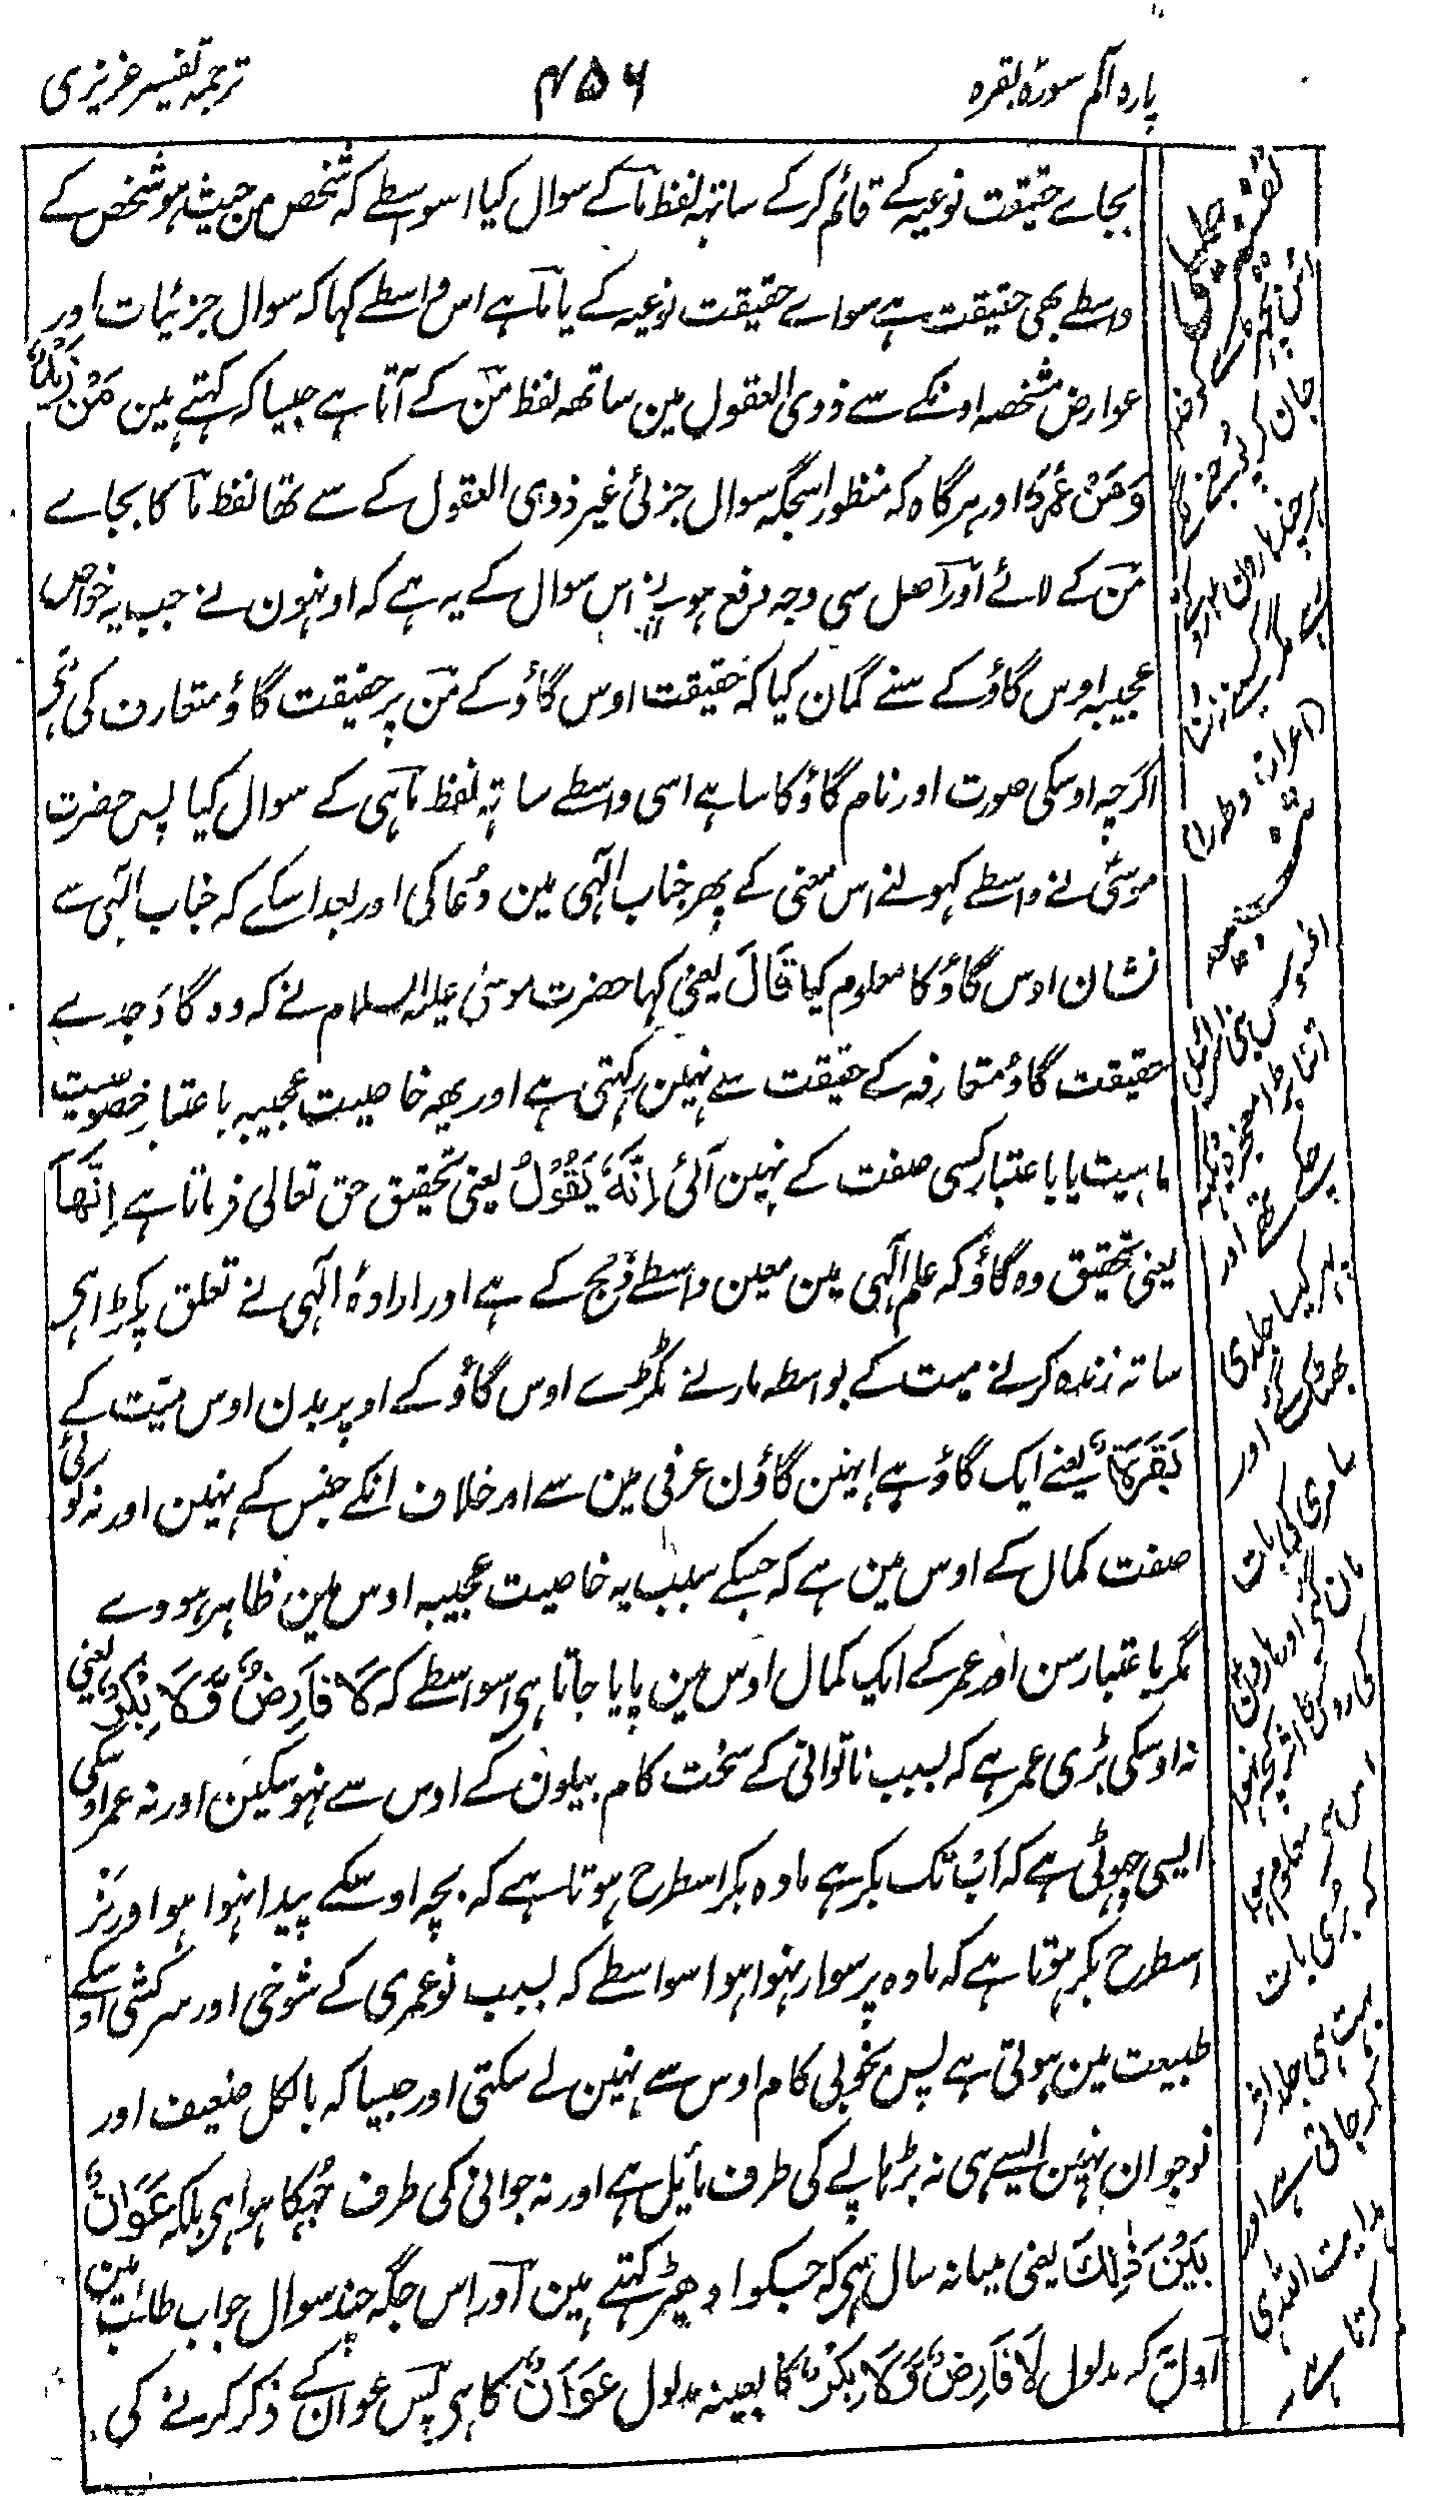 پارہ الم سورہ بقرہ
۴۵۶
ترجمہ تفسیر عزیزی
بجاے حقیقت نوعیہ کے قائم کر کے ساتہہ لفظ ما کے سوال کیا اسواسطے کہ شخص من حیث ہو شخص کے
واسطے بھی حقیقت ہے سواے حقیقت نوعیہ کے یا ما ہے اس واسطے کہا کہ سوال جزئیات اور
عوارض مشخصہ اونکے سے ذوی العقول مین ساتھہ لفظ من کے آتا ہے جیسا کہ کہتے ہین مَنْ زَیْدٌ
وَمَنْ عَمْرٌو اور ہرگاہ کہ منظور اسجگہ سوال جزئی غیر ذوی العقول کے سے تھا لفظ ما کا بجاے
من کے لائے اور اصل سی وجہ رفع ہونے اس سوال کے یہ ہے کہ اونہون نے جب یہ خواص
عجیبہ اوس گاؤ کے سنے گمان کیا کہ حقیقت اوس گاؤ کے من پر حقیقت گاؤ متعارف کی
اگرچہ اوسکی صورت اور نام گاؤ کا سا ہے اسی واسطے ساتہہ لفظ ما ہی کے سوال کیا پس حضرت
موسیٰ نے واسطے کہولنے اس معنی کے پھر جناب الٰہی مین دُعا کی اور بعد اسکے کہ جناب الٰہی سے
نشان اوس گاؤ کا معلوم کیا قَالَ یعنی کہا حضرت موسیٰ علیہ السلام نے کہ وہ گاؤ جدے
حقیقت گاؤ متعارفہ کے حقیقت سے نہین رکہتی ہے اور یہہ خاصیت عجیبہ باعتبار خصوصیت
ماہیت یا باعتبار کسی صفت کے نہین آئی اِنَّہٗ یَقُوْلُ یعنی تحقیق حق تعالی فرماتا ہے اِنَّھَا
یعنی تحقیق وہ گاؤ کہ علم الٰہی مین معین واسطے ذبح کے ہے اور ارادہ الٰہی نے تعلق پکڑا ہی
ساتہ زندہ کرنے میت کے بواسطہ مارنے ٹکڑے اوس گاؤ کے اوپر بدن اوس میت کے
بَقَرَۃٌ یعنے ایک گاؤ ہے انہین گاؤن عرفی مین سے اور خلاف انکے جنس کے نہین اور نہ کوئی
صفت کمال کے اوس مین ہے کہ جسکے سبب یہ خاصیت عجیبہ اوس مین ظاہر ہووے
مگر باعتبار سن اور عمر کے ایک کمال اوس مین پایا جاتا ہی اسواسطے کہ لَا فَارِضٌ وَّلَا بِکْرٌ یعنی
نہ اوسکی بڑی عمر ہے کہ بسبب ناتوانی کے سخت کام بیلون کے اوس سے نہو سکین اور نہ عمر اوسکی
ایسی چھوٹی ہے کہ اب تک بکر ہے مادہ بکر اسطرح ہوتا ہے کہ بچہ اوسکے پیدا نہوا ہو اور نر
اسطرح بکر ہوتا ہے کہ مادہ پر سوار نہوا ہو اسواسطے کہ بسبب نو عمری کے شوخی اور سرکشی اوسکے
طبیعت مین ہوتی ہے پس بخوبی کام اوس سے نہین لے سکتی اور جیسا کہ بالکل ضعیف اور
نوجوان نہین ایسے ہی نہ بڑہاپے کی طرف مائل ہے اور نہ جوانی کی طرف جُہکا ہوا ہی بلکہ عَوَانٌ
بَیْنَ ذٰلِکَ یعنی میانہ سال ہی کہ جسکو ادھیڑ کہتے ہین اور اس جگہ چند سوال جواب طلب ہین
اول یہ کہ مدلول لَا فَارِضٌ وَّلَا بِکْرٌ کا بعینہ مدلول عَوَانٌ کا ہی پس عوان کے ذکر کرنے کی
جان کر
بنی اسرائیل
اور
جلدی
سامری کی بات
مان گئے اور ہارون
اس سے معلوم ہوا
کہ بُری بات
بہت ہی جلد اثر
کر جاتی ہے اور
کرتا ہے